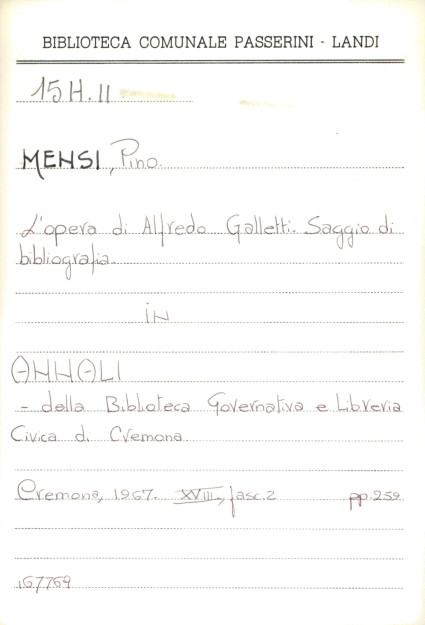 BIBLIOTECA COMUNALE PASSERINI - LANDI
15H.II
MENSI, Pino.
L'opera di Alfredo Galletti. Saggio di
bibliografia.
in
ANNALI
- della Biblioteca Governativa e Libreria
Civica di Cremona
Cremona, 1967. XVIII, fasc.2 pp.259
167769